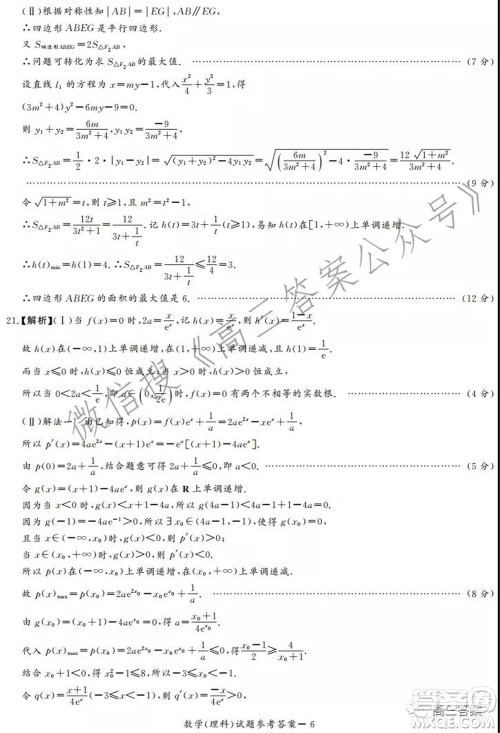 (Ⅱ)根据对称性知|AB|=|EG|,AB∥EG,
∴四边形ABEG是平行四边形.
又 S四边形ABEG=2S△F₂AB,
∴问题可转化为求 S△F₂AB的最大值. (7 分)
设直线 l₁ 的方程为 x=my−1,代入x²/4+y²/3=1,得
(3m²+4)y²−6my−9=0.
则 y₁+y₂=6m/(3m²+4),y₁y₂=−9/(3m²+4).
∴S△F₂AB=1/2·2·|y₁−y₂|=√((y₁+y₂)²−4y₁y₂)=√((6m/(3m²+4))²−4·−9/(3m²+4))=12√(1+m²)/(3m²+4).
(9 分)
令√(1+m²)=t,则 t≥1,且 m²=t²−1,
∴S△F₂AB=12t/(3t²+1)=12/(3t+1/t). 记 h(t)=3t+1/t(t≥1),易知 h(t)在[1,+∞)上单调递增.
∴h(t)min=h(1)=4. ∴S△F₂AB=12/(3t+1/t)≤12/4=3.
∴四边形 ABEG 的面积的最大值是 6. (12 分)
21.【解析】(Ⅰ)当 f(x)=0 时,2a=x/eˣ,记 h(x)=x/eˣ,则 h′(x)=(1−x)/eˣ.
故 h(x)在(−∞,1)上单调递增,在(1,+∞)上单调递减,且 h(1)=1/e.
当 x≤0 时,h(x)≤0 恒成立,当 x>0 时,h(x)>0 恒成立,
所以当 0<2a<1/e,即 a∈(0,1/2e)时,f(x)=0 有两个不相等的实数根. (4 分)
(Ⅱ)解法一 由已知得,p(x)=f(x)eˣ+1/a=2ae²ˣ−xeˣ+1/a,
所以 p′(x)=4ae²ˣ−(x+1)eˣ=−eˣ[(x+1)−4aeˣ].
由 p(0)=2a+1/a,结合题意可得 2a+1/a≤0,即 a<0. (5 分)
令 g(x)=(x+1)−4aeˣ,则 g(x)在 R 上单调递增.
因为当 x<0 时,g(x)<x+1−4a,所以 g(4a−1)<4a−1+1−4a=0.
因为 g(−1)=−4ae⁻¹>0,所以∃x₀∈(4a−1,−1),使得 g(x₀)=0,
且当 x∈(−∞,x₀)时,g(x)<0,则 p′(x)>0;
当 x∈(x₀,+∞)时,g(x)>0,则 p′(x)<0.
所以 p(x)在(−∞,x₀)上单调递增,在(x₀,+∞)上单调递减.
故 p(x)max=p(x₀)=2ae^(2x₀)−x₀e^(x₀)+1/a. (8 分)
由 g(x₀)=(x₀+1)−4ae^(x₀)=0,得 a=(x₀+1)/(4e^(x₀)).
代入 p(x)max=p(x₀)=2ae^(2x₀)−x₀e^(x₀)+1/a≤0,得(−x₀+1)/2≥4/(x₀+1).
结合 x₀+1<0,得 x₀²−1≤8,所以−3≤x₀<−1.
令 q(x)=(x+1)/(4eˣ)(−3≤x<−1),则 q′(x)=−x/(4eˣ)>0,
数学(理科)试题参考答案− 6
微信搜《高三答案公众号》
高三答案